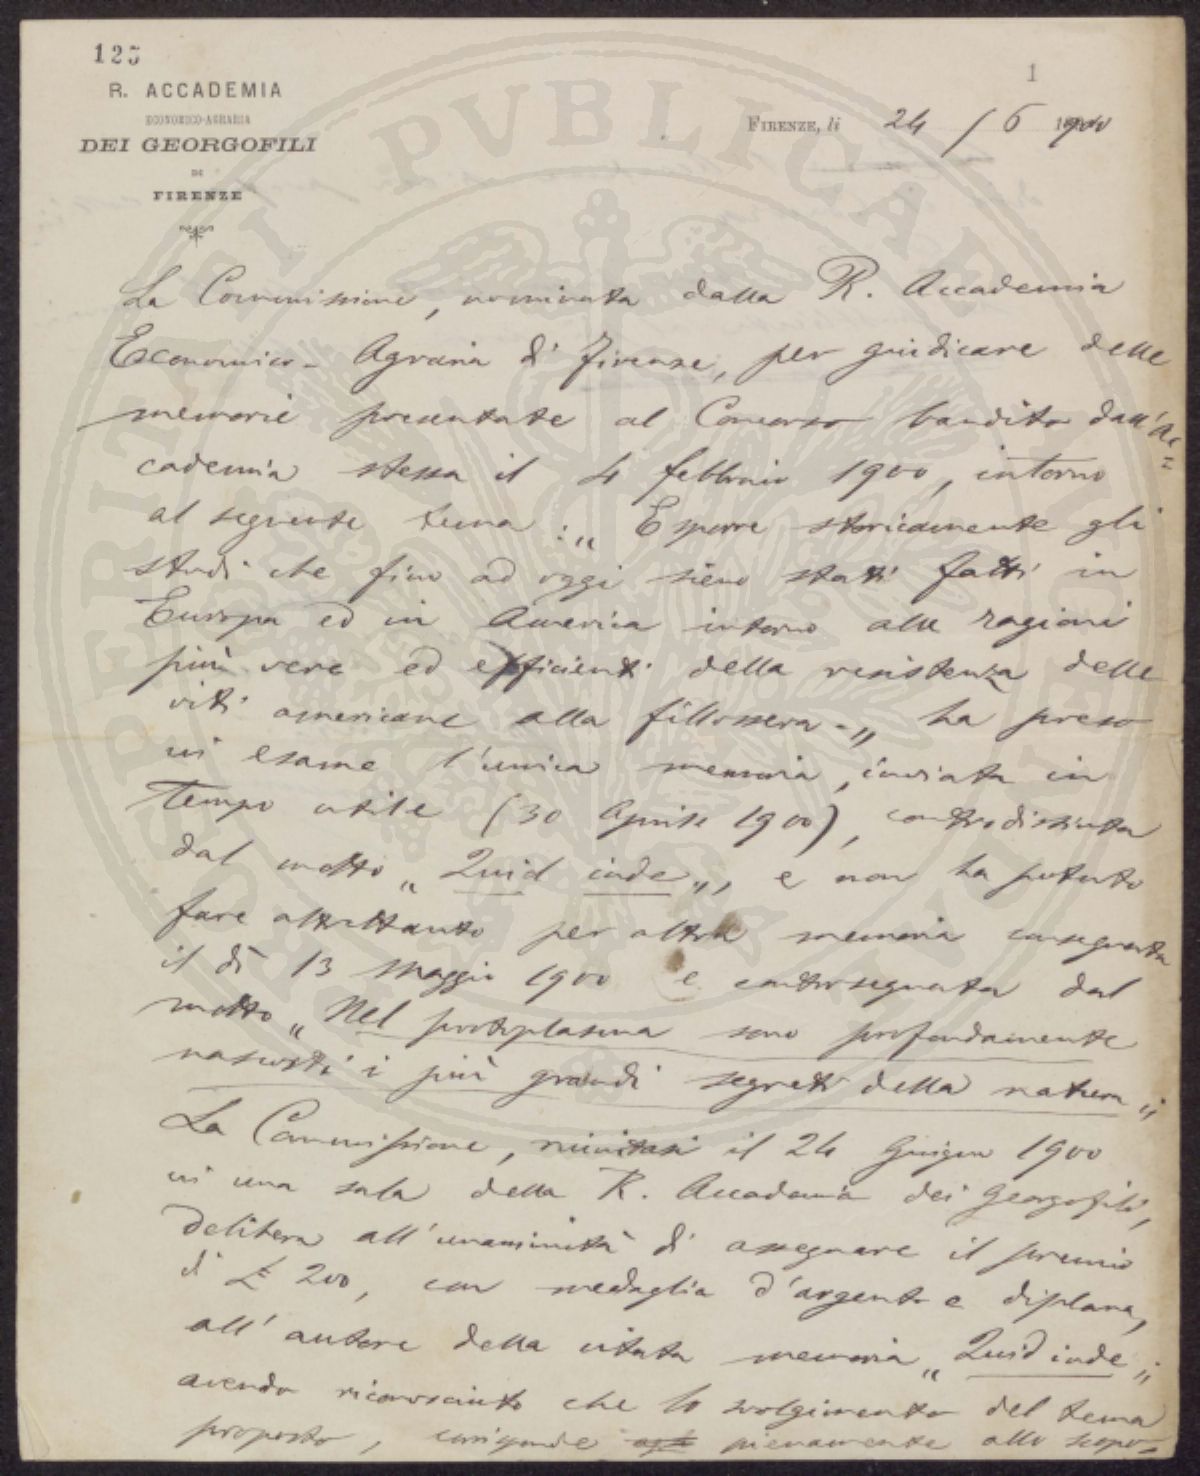 125
1
R. ACCADEMIA
ECONOMICO-AGRARIA
DEI GEORGOFILI
DI
FIRENZE
FIRENZE, li 24 / 6 1900
La Commissione, nominata dalla R. Accademia
Economico-Agraria di Firenze, per giudicare delle
memorie presentate al Concorso bandito dall'Ac=
cademia stessa il 4 febbraio 1900, intorno
al seguente tema: „ Esporre storicamente gli
studi che fino ad oggi sieno stati fatti in
Europa ed in America intorno alle ragioni
più vere ed efficienti della resistenza delle
viti americane alla fillossera. „ ha preso
in esame l'unica memoria, inviata in
tempo utile (30 Aprile 1900), contradistinta
dal motto „ Quid inde „, e non ha potuto
fare altrettanto per altra memoria consegnata
il dì 13 Maggio 1900 e contrasegnata dal
motto „ Nel protoplasma sono profondamente
nascosti i più grandi segreti della natura „
La Commissione, riunitasi il 24 Giugno 1900
in una sala della R. Accademia dei Georgofili,
delibera all'unanimità di assegnare il premio
di £ 200, con medaglia d'argento e diploma,
all'autore della citata memoria „ Quid inde „
avendo riconosciuto che lo svolgimento del tema
proposto, corrisponde pienamente allo scopo.
PERITATI PVBLICAE